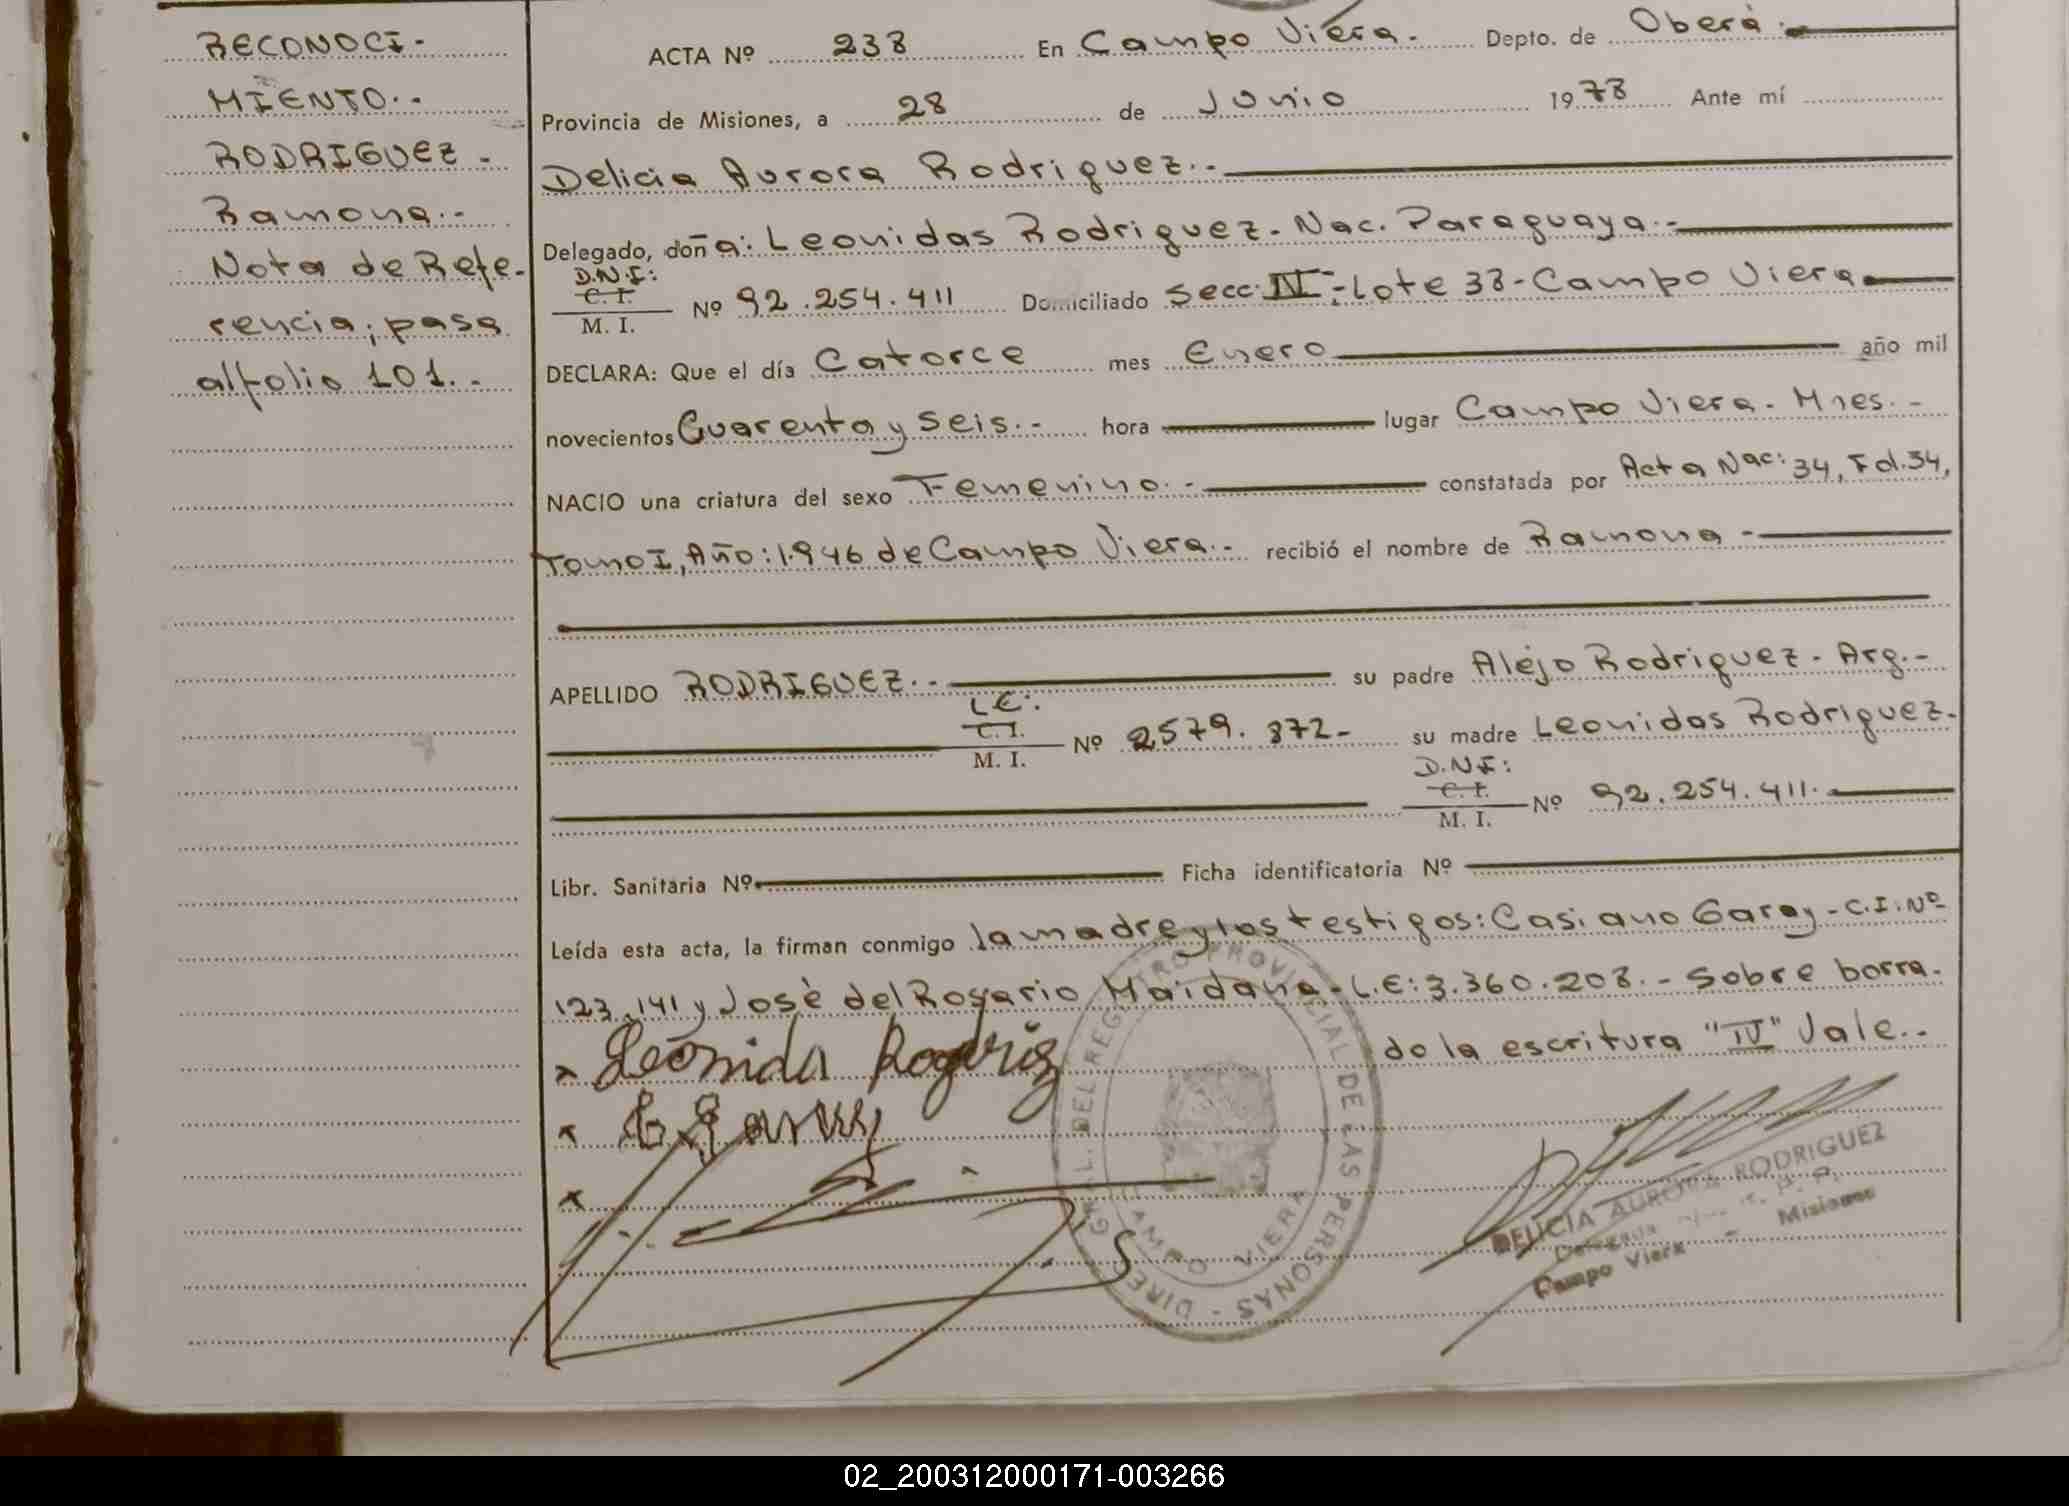 RECONOCI-
MIENTO.-
RODRIGUEZ.
Ramona.-
Nota de Refe-
rencia; pasa
alfolio 101.-
ACTA Nº 238 En Campo Viera. Depto. de Oberá.
Provincia de Misiones, a 28 de Junio 1978 Ante mí
Delicia Aurora Rodriguez.-
Delegado, doña: Leonidas Rodriguez. Nac. Paraguaya.-
D.N.I:
C. I.
M. I. Nº 92.254.411 Domiciliado Secc. IV-Lote 38-Campo Viera
DECLARA: Que el día Catorce mes Enero año mil
novecientos Cuarenta y Seis.- hora lugar Campo Viera. Mnes.-
NACIO una criatura del sexo Femenino.- constatada por Acta Nac: 34, Fol. 34,
Tomo I, Año: 1.946 de Campo Viera.- recibió el nombre de Ramona -
APELLIDO RODRIGUEZ.- su padre Alejo Rodriguez. Arg.-
L.E:
C. I.
M. I. Nº 2579.872- su madre Leonidas Rodriguez.
D.N.I:
C. I.
M. I. Nº 92.254.411.
Libr. Sanitaria Nº Ficha identificatoria Nº
Leída esta acta, la firman conmigo la madre y los testigos: Casiano Garay - C.I. Nº
123.141 y José del Rosario Maidana - L.E: 3.360.208.- Sobre borra-
do la escritura "IV" Vale.-
Leonida Rodrig
DIREC. GRAL. DEL REGISTRO PROVINCIAL DE LAS PERSONAS -
CAMPO VIERA
DELICIA AURORA RODRIGUEZ
Delegada
Campo Viera - Misiones
02_200312000171-003266